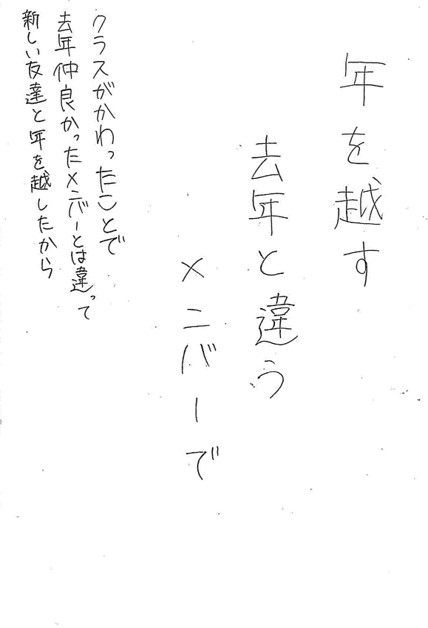 年を越す
去年と違う
メンバーで
クラスがかわったことで
去年仲良かったメンバーとは違って
新しい友達と年を越したから